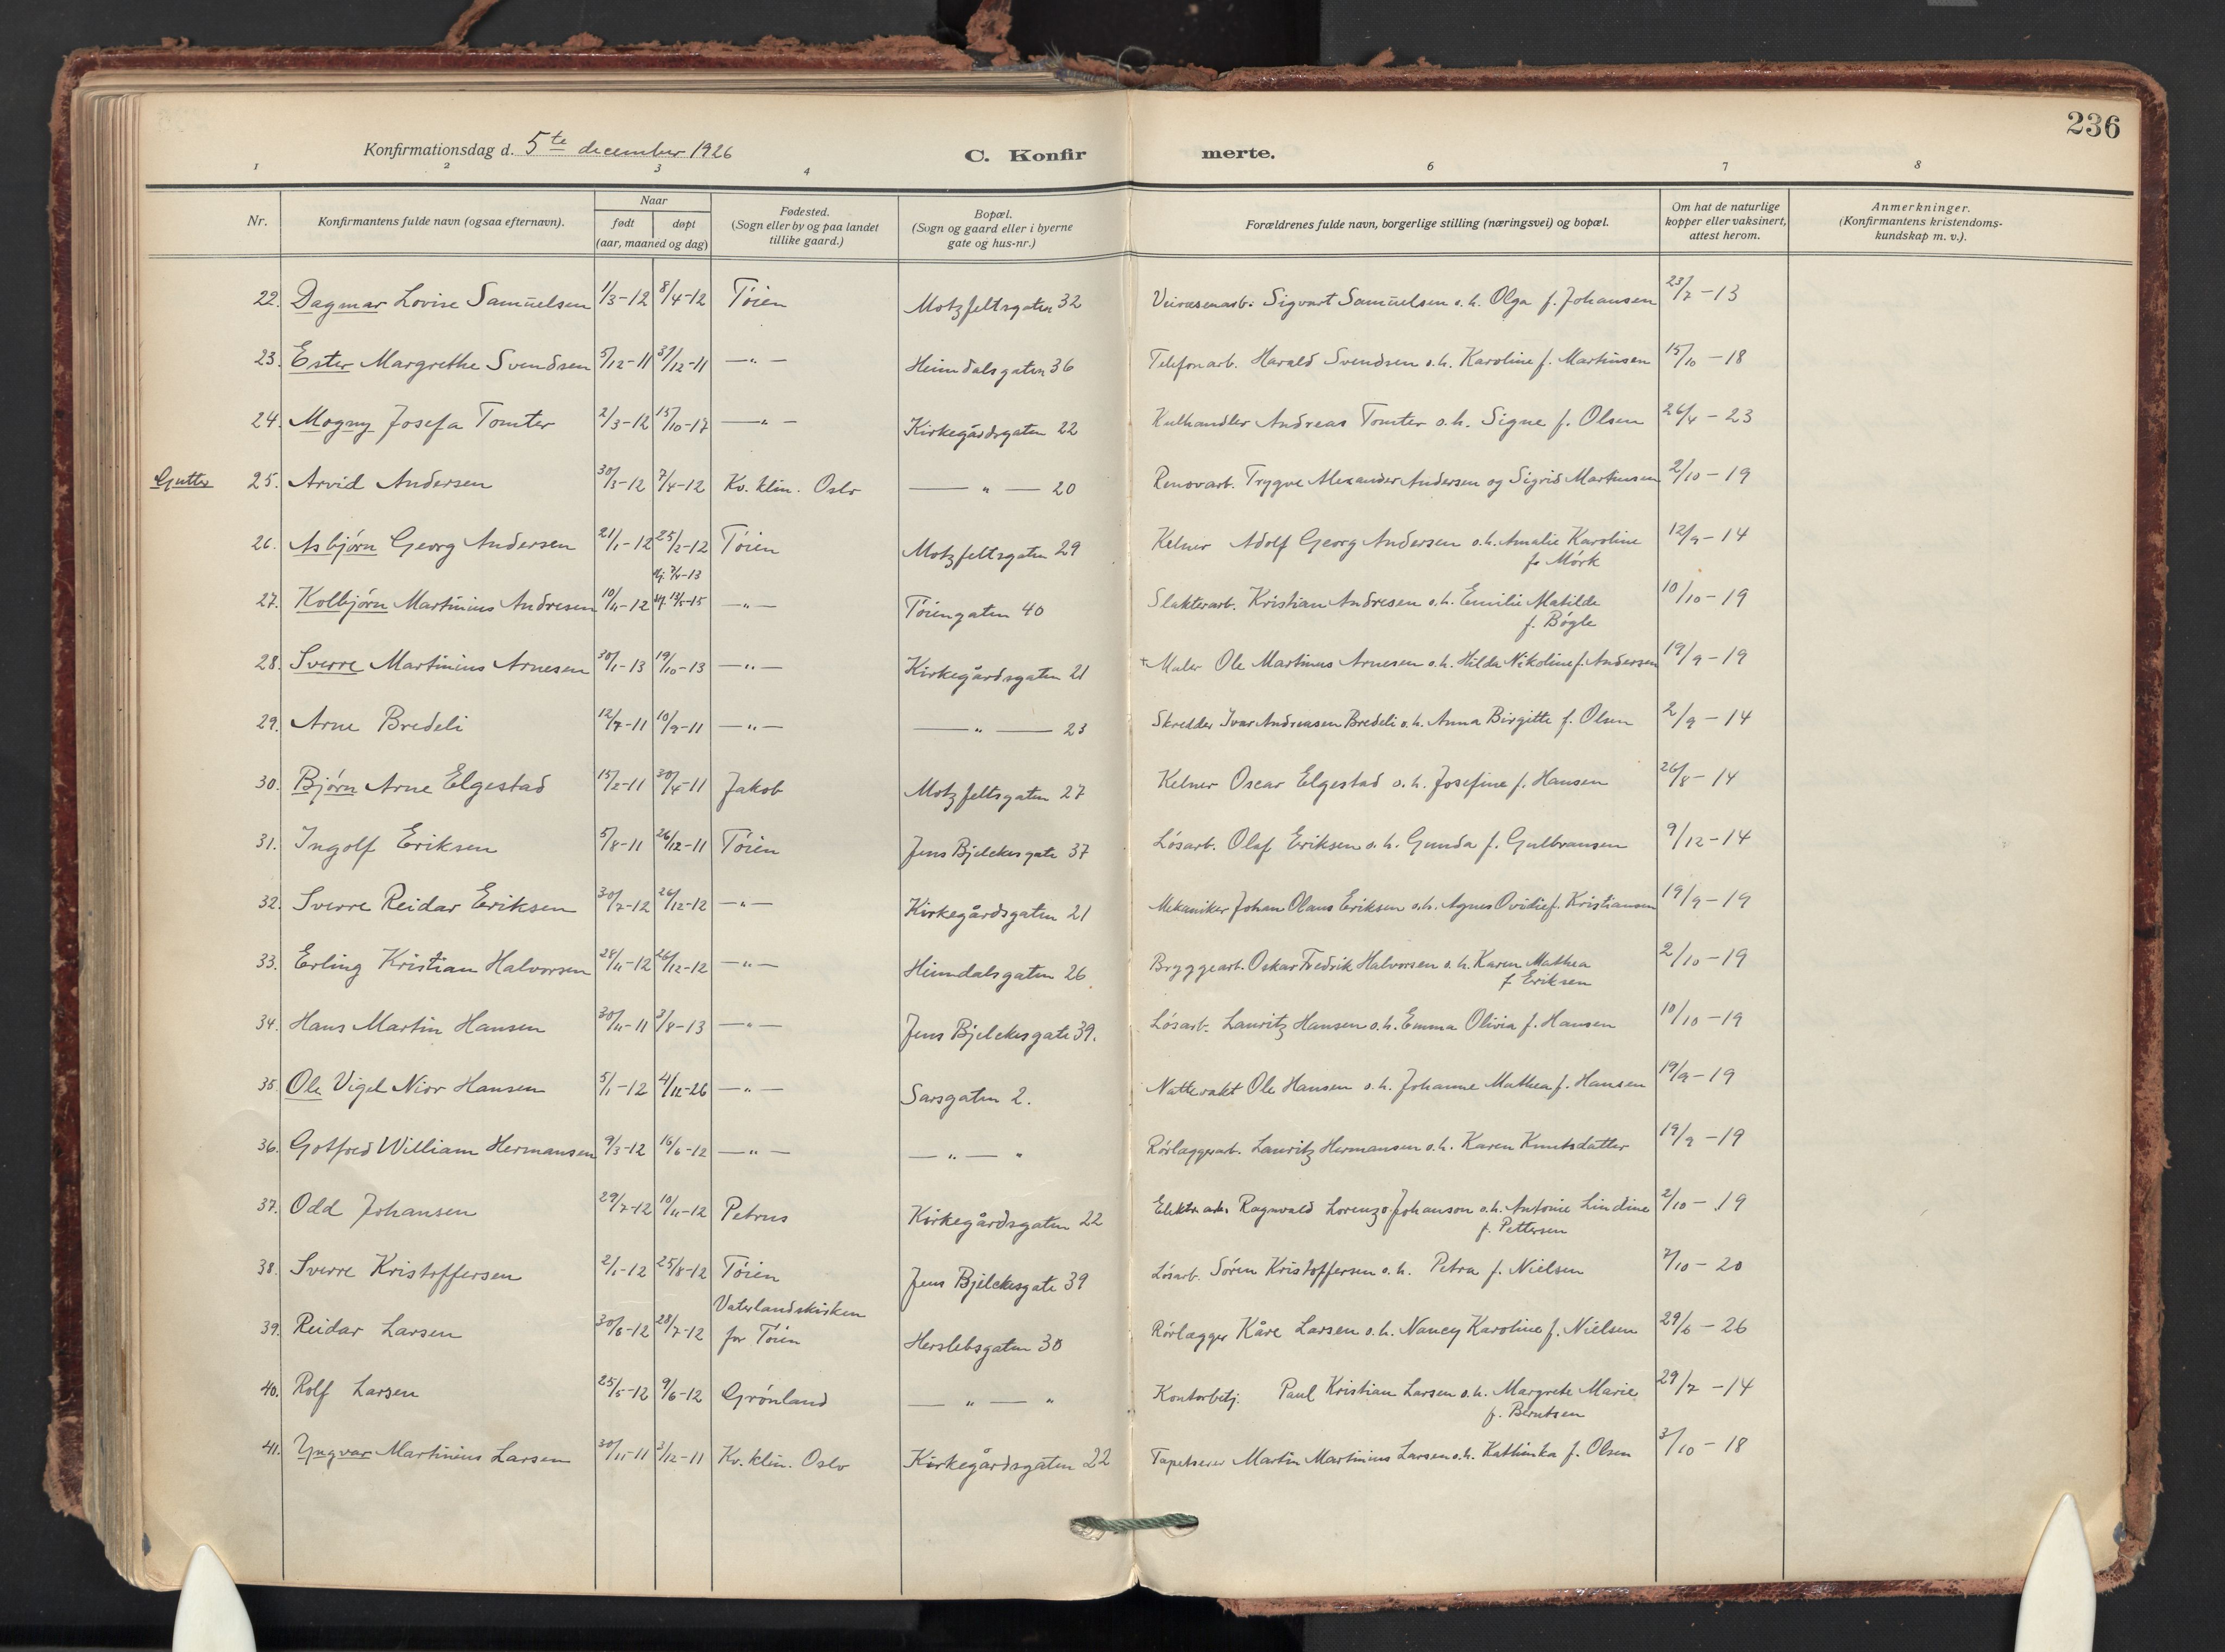 236
Konfirmationsdag d. 5te december 1926
C. Konfirmerte.
1 2 3 4 6 7 8
Nr.
Konfirmantens fulde navn (ogsaa efternavn).
Naar
født døpt
(aar, maaned og dag)
Fødested.
(Sogn eller by og paa landet
tillike gaard.)
Bopæl.
(Sogn og gaard eller i byerne
gate og hus-nr.)
Forældrenes fulde navn, borgerlige stilling (næringsvei) og bopæl.
Om hat de naturlige
kopper eller vaksinert,
attest herom.
Anmerkninger.
(Konfirmantens kristendoms-
kundskap m. v.).
22. Dagmar Lovise Samuelsen 1/3-12 8/4-12 Tøien Motzfeltsgaten 32 Veivæsenarb. Sigvart Samuelsen o.h. Olga f. Johansen 23/7-13
23. Ester Margrethe Svendsen 5/12-11 31/12-11 —"— Heimdalsgaten 36 Telefonarb. Harald Svendsen o.h. Karoline f. Martinsen 15/10-18
24. Mogny Josefa Tomter 2/3-12 15/10-17 —"— Kirkegårdsgaten 22 Kulhandler Andreas Tomter o.h. Signe f. Olsen 26/4-23
Gutter 25. Arvid Andersen 30/3-12 7/4-12 Kv. klin. Oslo —"— 20 Renovarb. Trygve Alexander Andersen og Sigrid Martinsen 2/10-19
26. Asbjørn Georg Andersen 21/1-12 25/2-12 Tøien Motzfeltsgaten 29 Kelner Adolf Georg Andersen o.h. Amalie Karoline 12/9-14
f. Mørk
27. Kolbjørn Martinius Andresen 10/11-12 13/5-15 —"— Tøiengaten 40 Slakterarb. Kristian Andresen o.h. Emilie Matilde 10/10-19
f. Bøgle
28. Sverre Martinius Arnesen 30/1-13 19/10-13 —"— Kirkegårdsgaten 21 + Maler Ole Martinus Arnesen o.h. Hilda Nikoline f. Andersen 19/9-19
29. Arne Bredeli 12/7-11 10/9-11 —"— —"— 23 Skredder Ivar Andreasen Bredeli o.h. Anna Birgitte f. Olsen 2/9-14
30. Bjørn Arne Elgestad 15/2-11 30/4-11 Jakob Motzfeltsgaten 27 Kelner Oscar Elgestad o.h. Josefine f. Hansen 26/8-14
31. Ingolf Eriksen 5/8-11 26/12-11 Tøien Jens Bjelckesgate 37 Løsarb. Olaf Eriksen o.h. Gunda f. Gulbransen 9/12-14
32. Sverre Reidar Eriksen 30/7-12 26/12-12 —"— Kirkegårdsgaten 21 Mekaniker Johan Olaus Eriksen o.h. Agnes Ovidie f. Kristiansen 19/9-19
33. Erling Kristian Halvorsen 28/11-12 26/12-12 —"— Heimdalsgaten 26 Bryggearb. Oskar Fredrik Halvorsen o.h. Karen Mathea 2/10-19
f. Eriksen
34. Hans Martin Hansen 30/11-11 3/8-13 —"— Jens Bjelckesgate 39. Løsarb. Lauritz Hansen o.h. Emma Olivia f. Hansen 10/10-19
35. Ole Vigel Nior Hansen 5/1-12 4/12-26 —"— Sarsgaten 2. Nattevakt Ole Hansen o.h. Johanne Mathea f. Hansen 19/9-19
36. Gotfred William Hermansen 9/3-12 16/6-12 —"— —"— " Rørlæggerarb. Lauritz Hermansen o.h. Karen Knutsdatter 19/9-19
37. Odd Johansen 29/7-12 10/11-12 Petrus Kirkegårdsgaten 22 Elektr. arb. Ragnvald Lorenzo Johanson o.h. Antonie Lindine 2/10-19
f. Pettersen
38. Sverre Kristoffersen 2/1-12 25/8-12 Tøien Jens Bjelckesgate 39 Løsarb. Søren Kristoffersen o.h. Petra f. Nielsen 7/10-20
Vaterlandskirken
39. Reidar Larsen 30/6-12 28/7-12 for Tøien Herslebsgaten 30 Rørlægger Kåre Larsen o.h. Nancy Karoline f. Nielsen 29/6-26
40. Rolf Larsen 25/5-12 9/6-12 Grønland —"— " Kontorbetj. Paul Kristian Larsen o.h. Margrete Marie 29/7-14
f. Berntsen
41. Yngvar Martinius Larsen 30/11-11 3/12-11 Kv. klin. Oslo Kirkegårdsgaten 22 Tapetserer Martin Martinius Larsen o.h. Kathinka f. Olsen 3/10-18